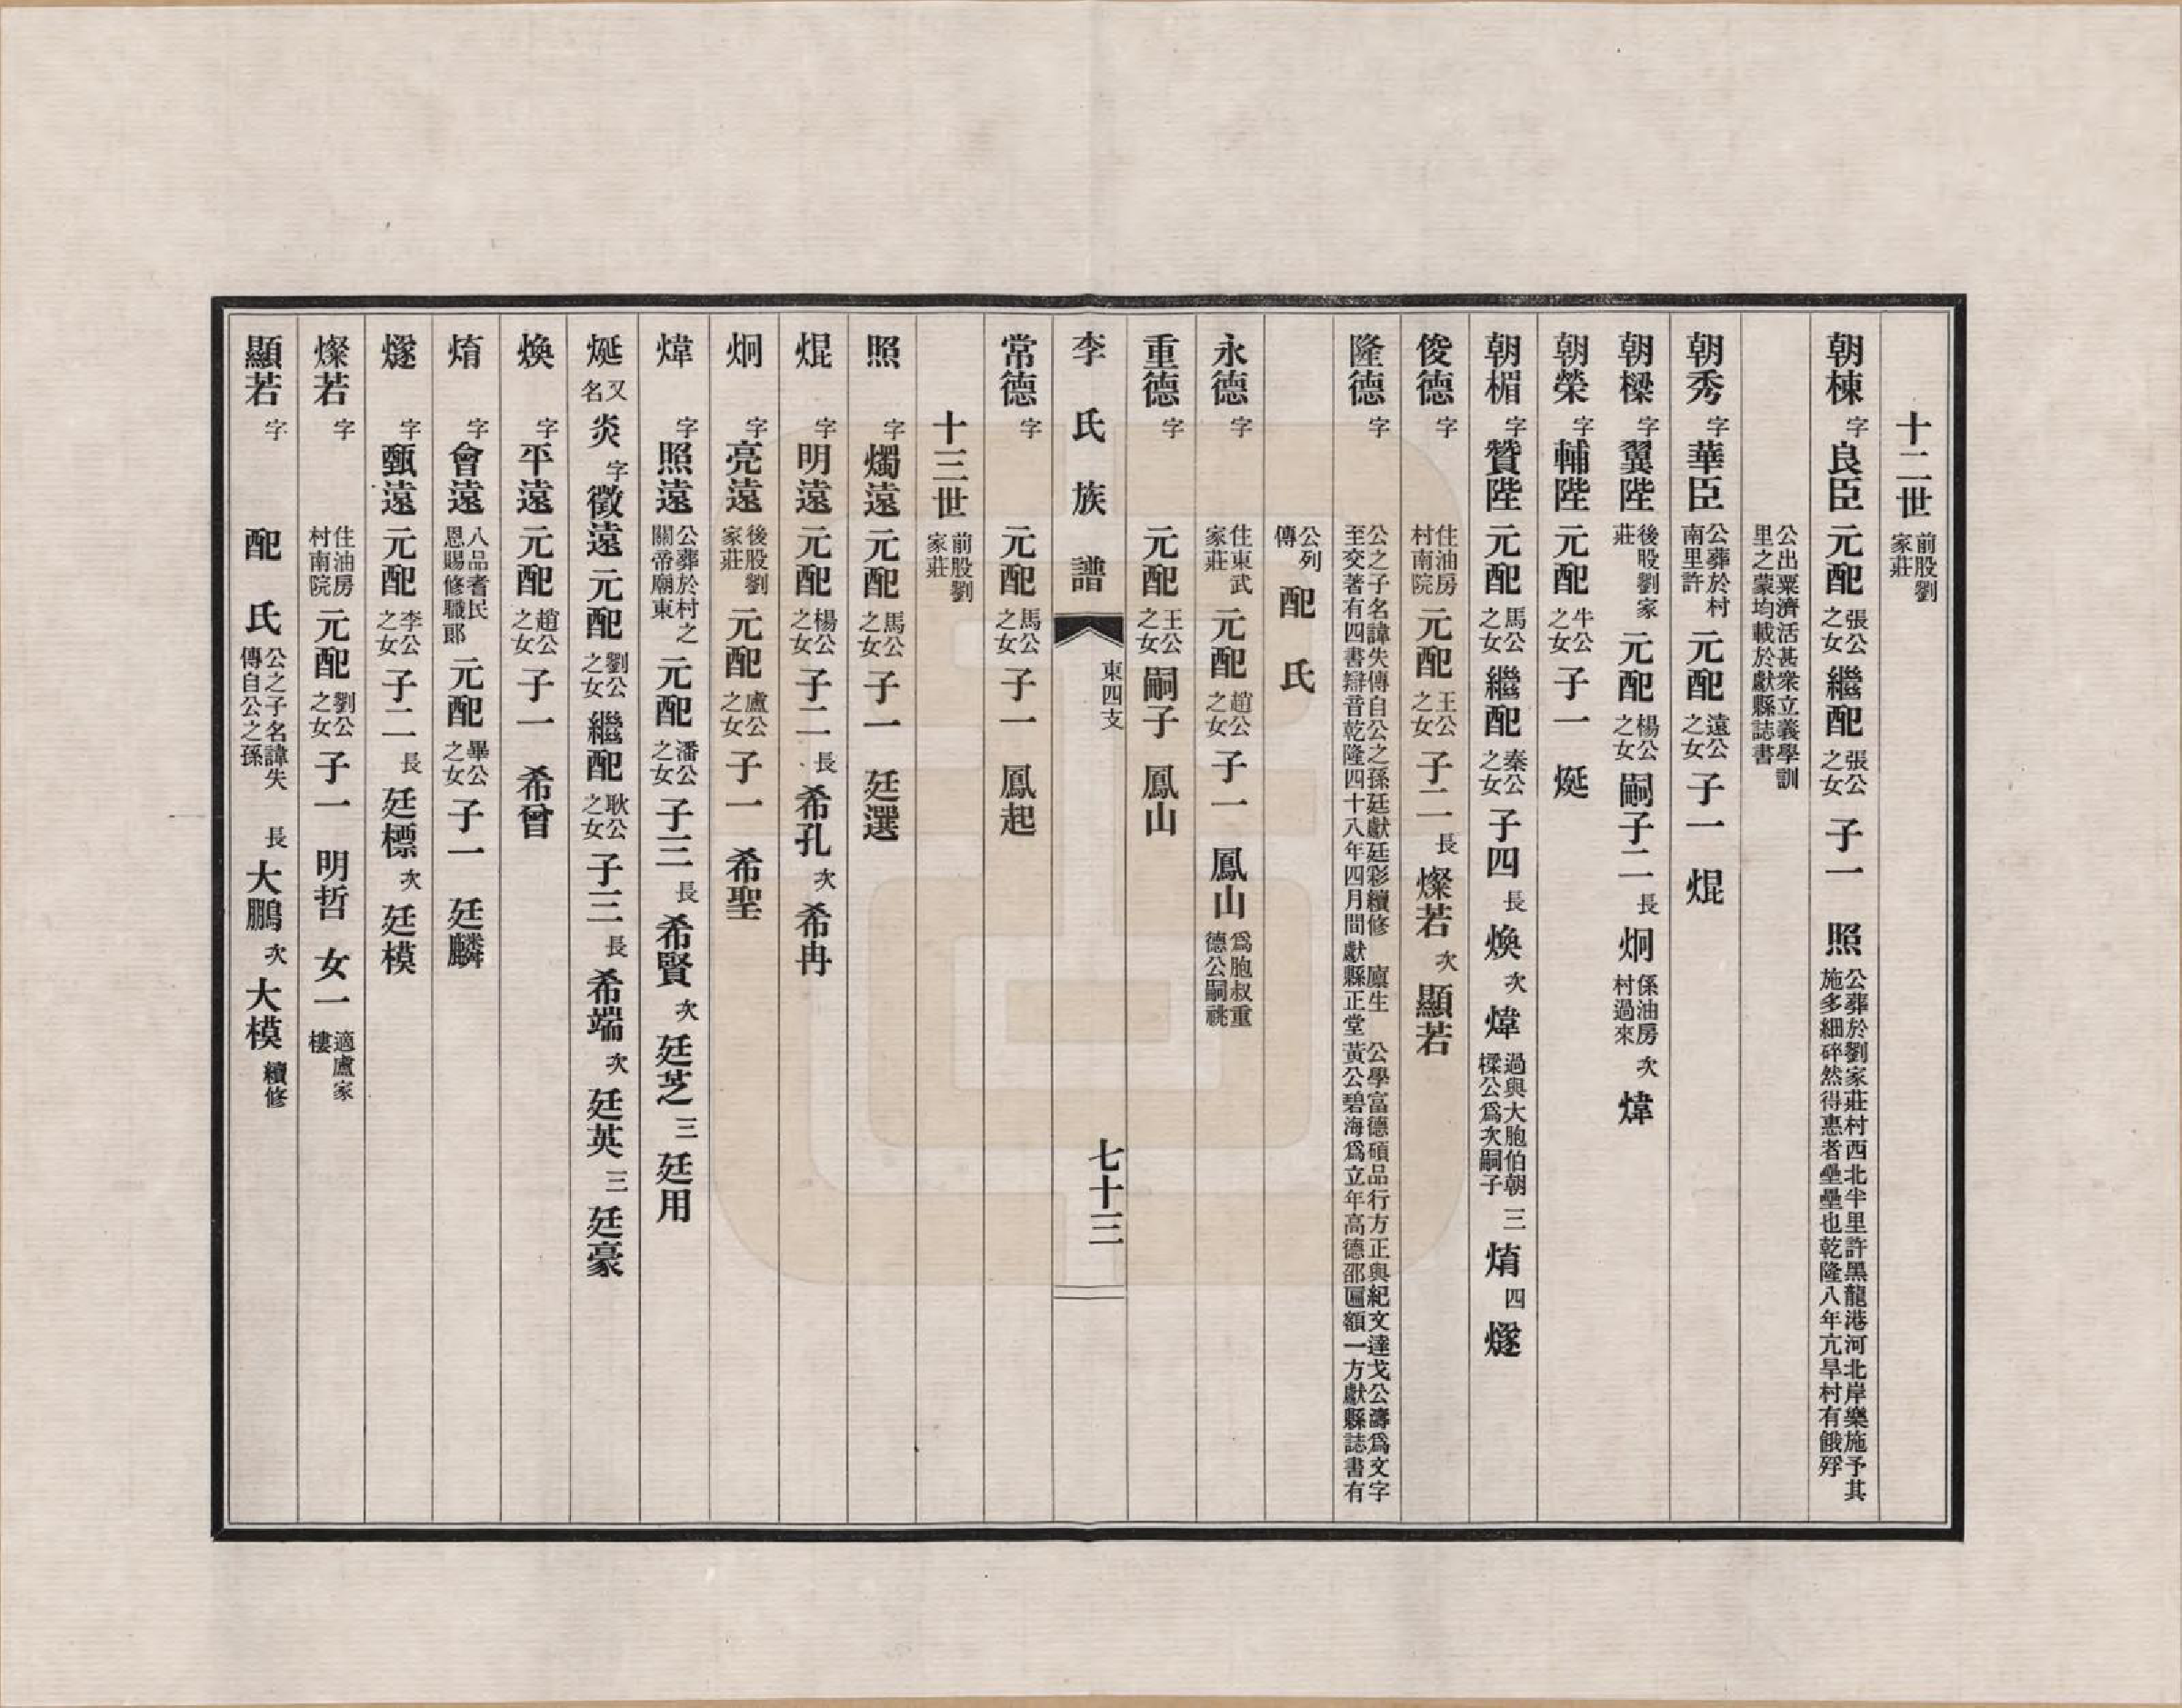 十二世 前股劉家莊
朝棟 字良臣 元配張公之女 繼配張公之女 子一 照 公葬於劉家莊村西北半里許黑龍港河北岸樂施予其施多細碎然得惠者壘壘也乾隆八年亢旱村有餓殍
公出粟濟活甚衆立義學訓里之蒙均載於獻縣誌書
朝秀 字華臣 公葬於村南里許 元配遠公之女 子一 焜
朝樑 字翼陛 後股劉家莊 元配楊公之女 嗣子二 長炯 係油房村過來 次煒
朝榮 字輔陛 元配牛公之女 子一 烻
朝楣 字贊陛 元配馬公之女 繼配秦公之女 子四 長煥 次煒 過與大胞伯朝樑公爲次嗣子 三焴 四燧
俊德 字 住油房村南院 元配王公之女 子二 長燦若 次顯若
隆德 字 公之子名諱失傳自公之孫廷獻廷彩續修 廩生 公學富德碩品行方正與紀文達戈公濤爲文字至交著有四書辯音乾隆四十八年四月間獻縣正堂黃公碧海爲立年高德邵匾額一方獻縣誌書有
公列傳 配 氏
永德 字 住東武家莊 元配趙公之女 子一 鳳山 爲胞叔重德公嗣祧
重德 字 元配王公之女 嗣子 鳳山
李氏族譜 東四支 七十三
常德 字 元配馬公之女 子一 鳳起
十三世 前股劉家莊
照 字燭遠 元配馬公之女 子一 廷選
焜 字明遠 元配楊公之女 子二 長希孔 次希冉
炯 字亮遠 後股劉家莊 元配盧公之女 子一 希聖
煒 字照遠 公葬於村之關帝廟東 元配潘公之女 子三 長希賢 次廷芝 三廷用
烻 又名炎 字徵遠 元配劉公之女 繼配耿公之女 子三 長希端 次廷英 三廷豪
煥 字平遠 元配趙公之女 子一 希曾
焴 字會遠 八品耆民恩賜修職郎 元配畢公之女 子一 廷麟
燧 字甄遠 元配李公之女 子二 長廷標 次廷模
燦若 字 住油房村南院 元配劉公之女 子一 明哲 女一 適盧家樓
顯若 字 配 氏 公之子名諱失傳自公之孫 長大鵬 次大模 續修